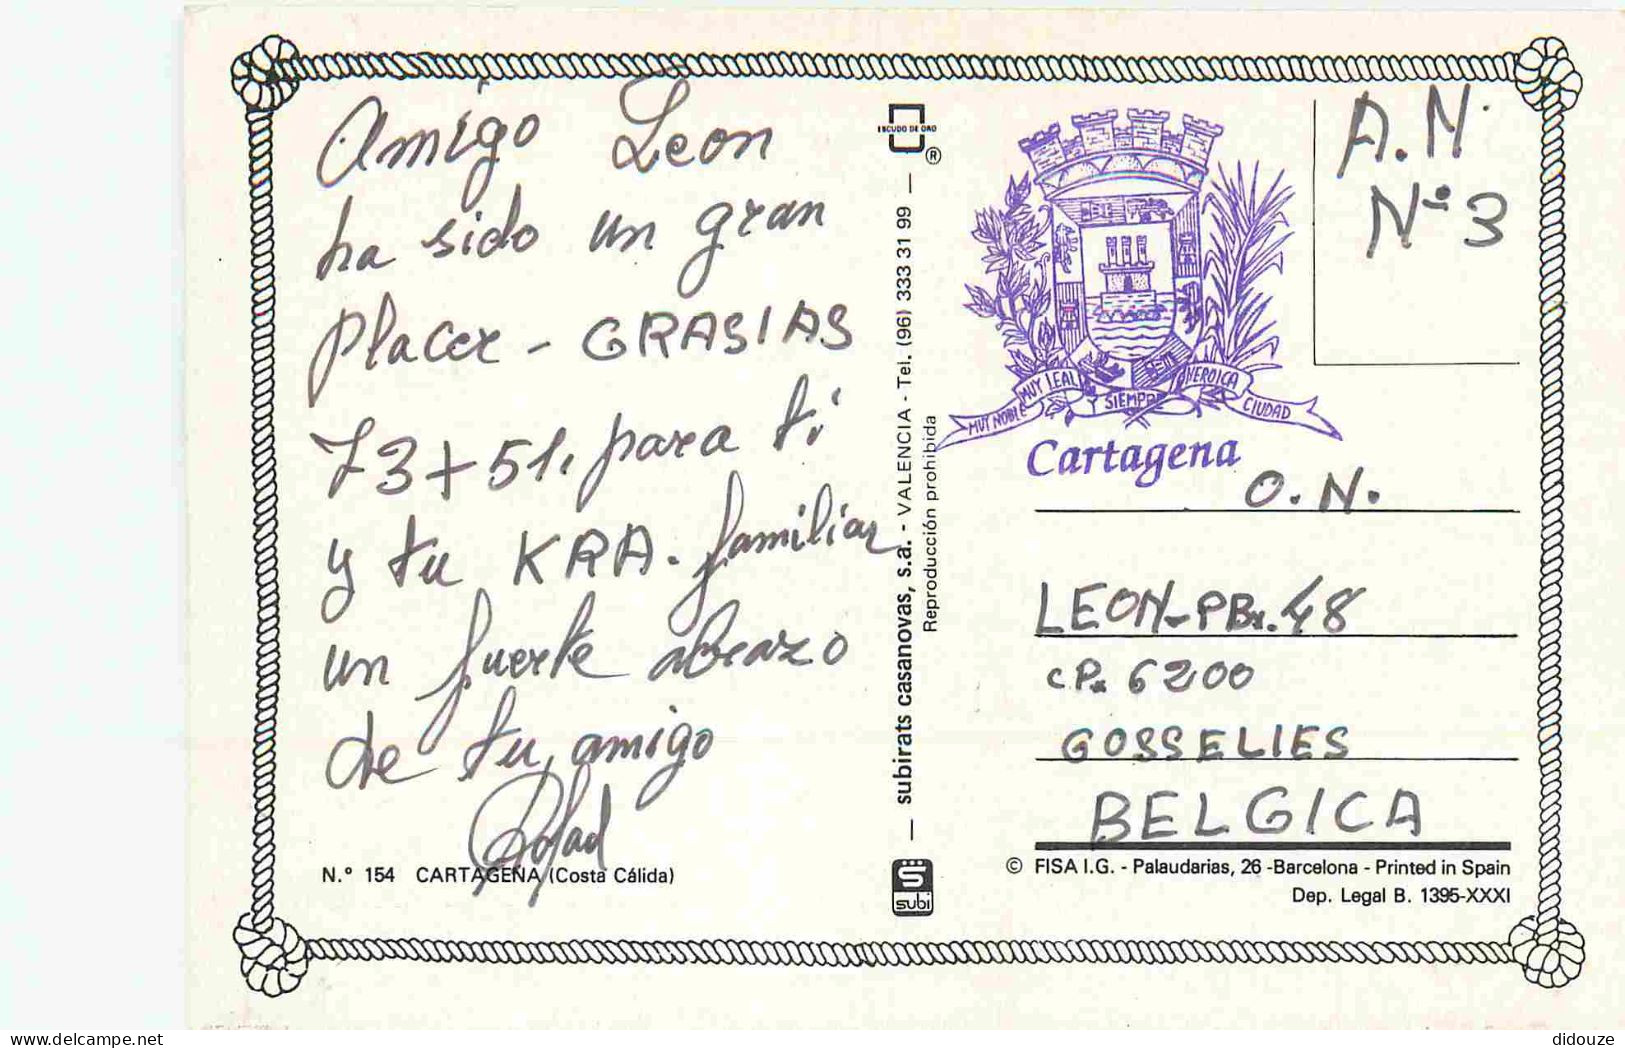 Amigo Leon
ha sido un gran
placer - GRASIAS
73+51. para ti
y tu KRA. familiar
un fuerte abrazo
de tu amigo
N.º 154 CARTAGENA (Costa Cálida)
ESCUDO DE ORO
®
— subirats casanovas, s.a. - VALENCIA - Tel. (96) 333 31 99 —
Reproducción prohibida
subi
MUY NOBLE MUY LEAL Y SIEMPRE HEROICA CIUDAD
Cartagena
A.N.
Nº 3
O.N.
LEON-PBx.48
CP. 6200
GOSSELIES
BELGICA
© FISA I.G. - Palaudarias, 26 -Barcelona - Printed in Spain
Dep. Legal B. 1395-XXXI
didouze